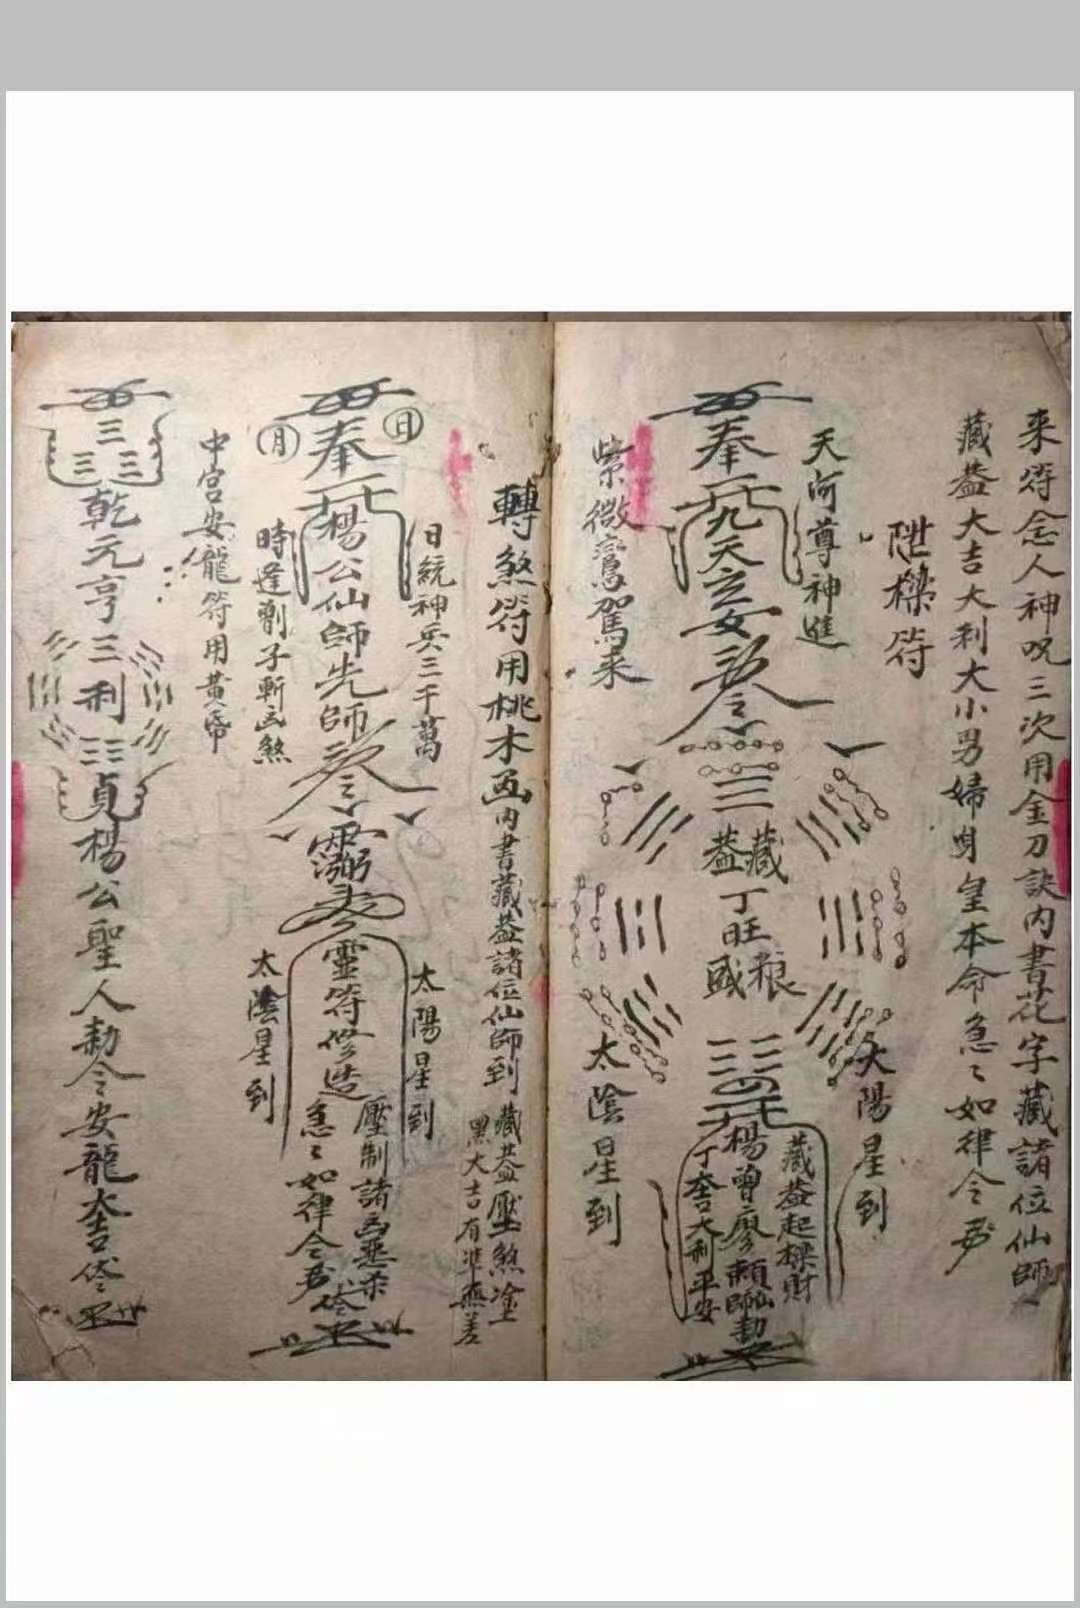 來符念人神呪三次用金刀訣內書花字藏諸位仙師
藏葢大吉大利大小男婦身皇本命急〻如律令
陞樑符
天河尊神進
太陽星到
奉
九天玄女
藏葢
丁旺
粮盛
楊曾廖賴仙師勅
藏葢起樑財
丁大吉大利平安
紫微鸞駕來
太陰星到
轉煞符用桃木画內書藏葢諸位仙師到
藏葢壓煞塗
黑大吉有準無差
日
日統神兵三千萬
太陽星到
奉
楊公仙師先師
靈符修造
壓制諸凶
急〻如律令
月
時逢劊子斬凶煞
太陰星到
中宮安龍符用黃帋
乾元亨利貞楊公聖人勅令安龍大吉